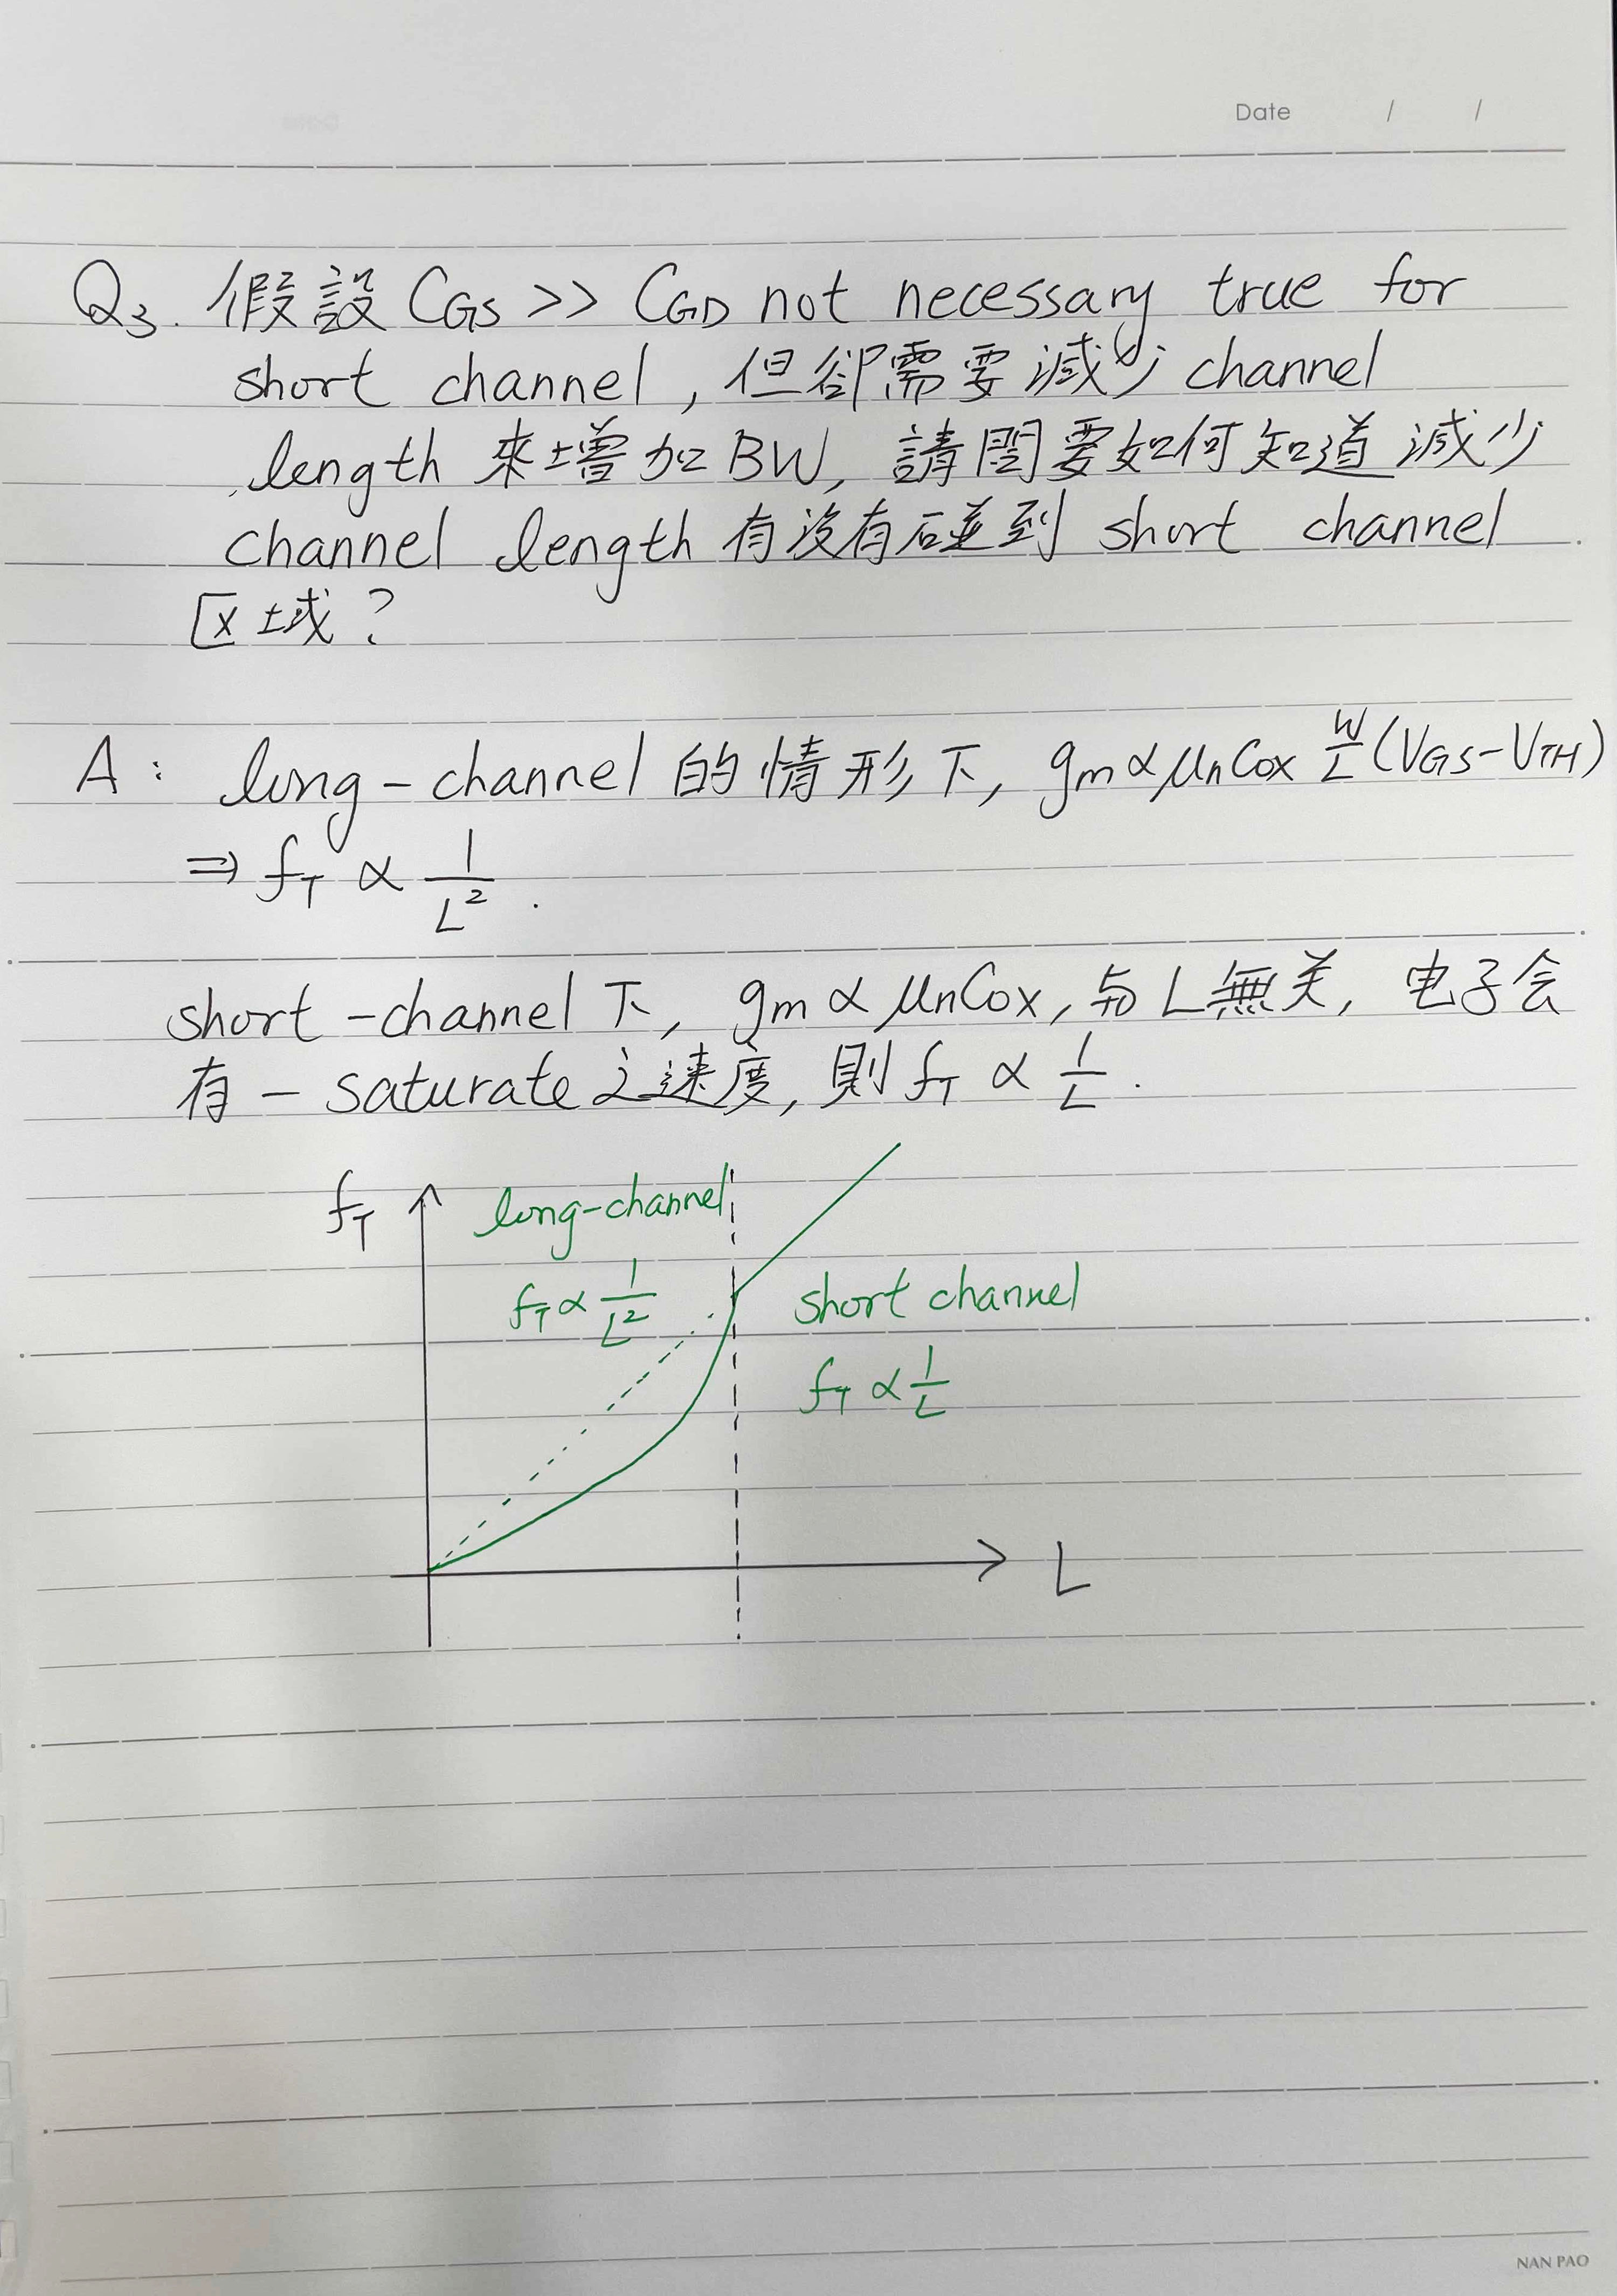 Date / /
Q3. 假設 CGS >> CGD not necessary true for
short channel, 但卻需要減少 channel
length 來增加 BW, 請問要如何知道減少
channel length 有沒有碰到 short channel
区域?
A: long-channel 的情形下, gm ∝ μnCox W/L (VGS-VTH)
⇒ fT ∝ 1/L².
short-channel 下, gm ∝ μnCox, 与 L 無关, 电子会
有一 saturate 之速度, 則 fT ∝ 1/L.
fT
long-channel
fT ∝ 1/L²
short channel
fT ∝ 1/L
L
NAN PAO